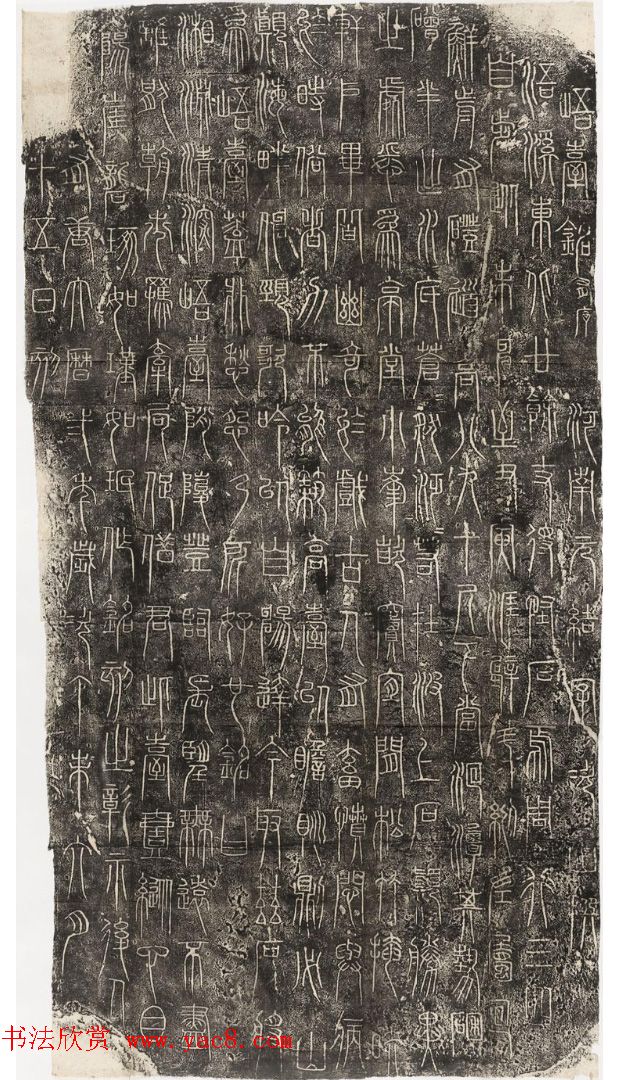 峿臺銘有序 河南元結字次山撰
浯溪東北廿餘丈得怪石焉周行三四
百步從未申至丑寅涯壁斗絕左屬回
鮮前有磴道高八九十尺下當洄潭其勢硱
磳半出水底蒼然泛泛若在波上石巔勝異
之處悉為亭堂小峰嵌竇宜間松竹掩映
軒戶畢皆幽奇於戲古人有畜憤悶與病
於時俗者力不能築高臺以瞻眺則必山
巔海畔伸頸歌吟以自暢達今取茲石將
為峿臺蓋非愁怨乃所好也銘曰
湘淵清深峿臺陗陵登臨長望無遠不盡
誰厭朝市羈牽局促借君此臺壹縱心目
陽崖礱琢如瑾如珉作銘刻之彰示後人
有唐大曆二年歲次丁未六月
十五日刻
书法欣赏 www.yac8.com